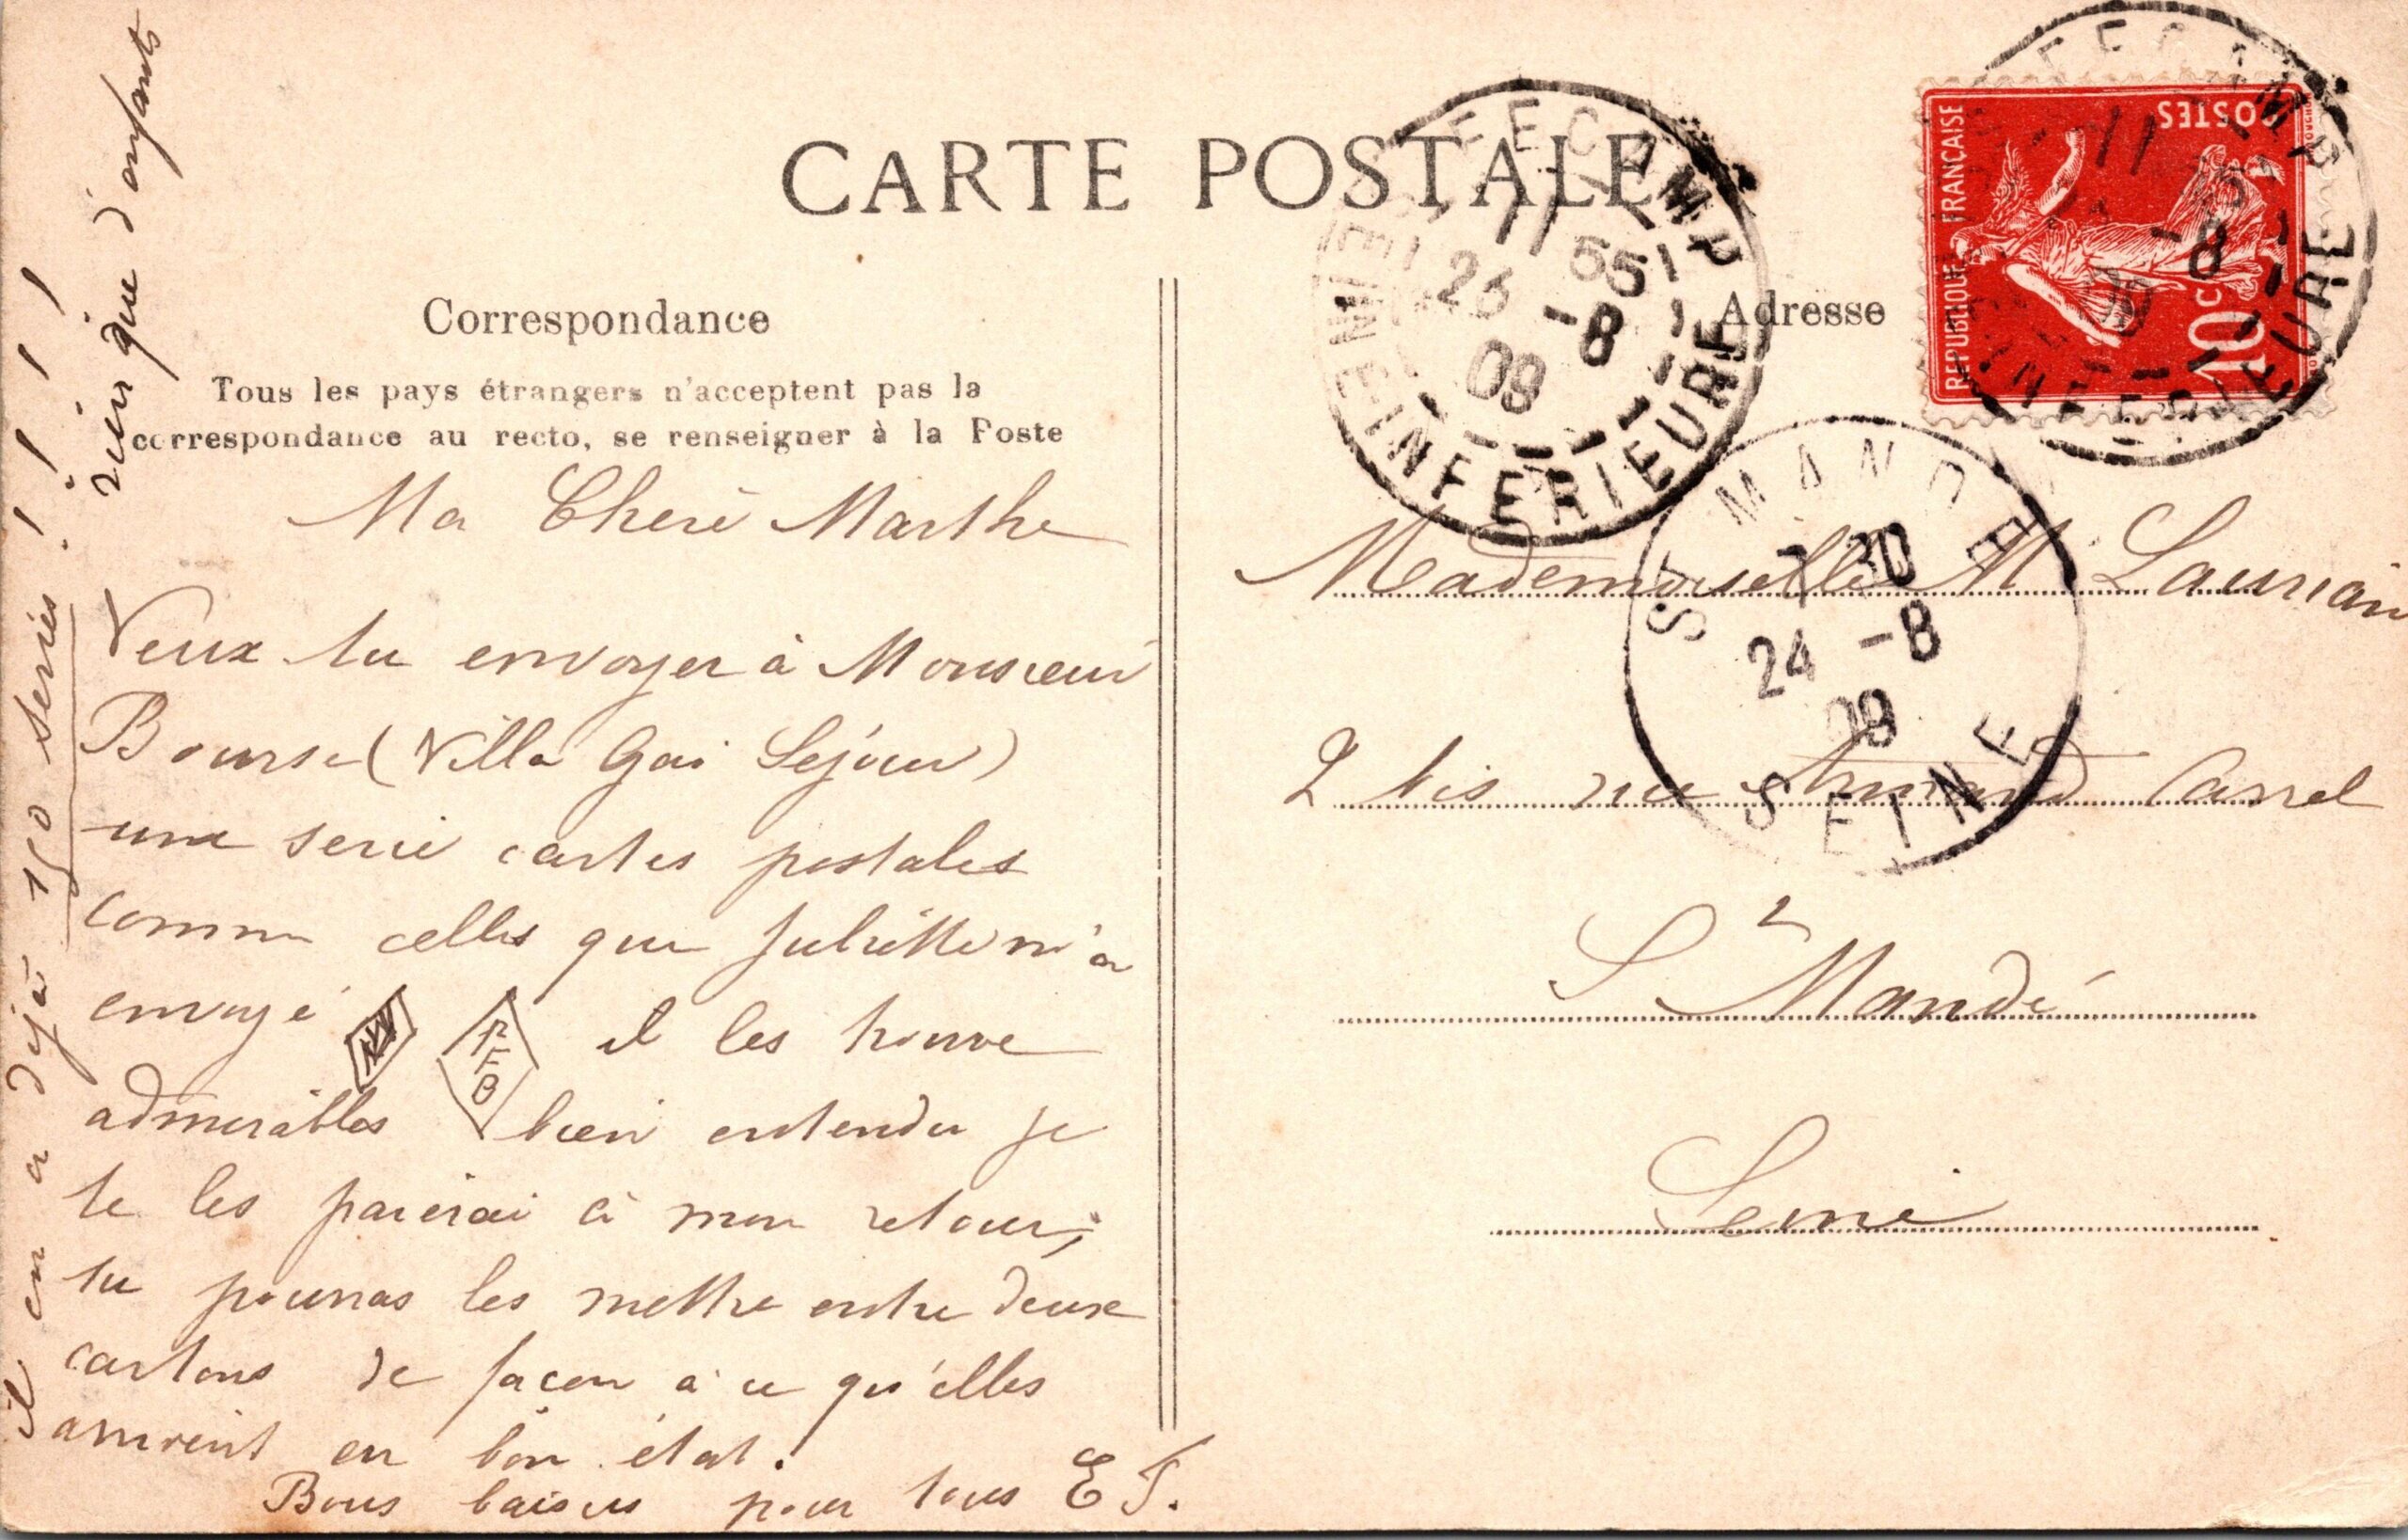 CARTE POSTALE
Correspondance
Tous les pays étrangers n'acceptent pas la
correspondance au recto, se renseigner à la Poste
Ma Cheré Marthe
Veux tu envoyer à Monsieur
Bourse (Villa Gai Sejour)
une serie cartes postales
comme celles que Juliette m'a
envoyé
P
F
B
il les trouve
admirables bien entendu je
te les paierai à mon retour,
tu pourras les mettre entre deux
cartons de façon à ce qu'elles
arrivent en bon état.
Bons baisers pour tous E
il en a déjà 150 series! ! ! !
rien que d'enfants
Adresse
Mademoiselle M Laurian
2 bis rue Armand Carrel
St Mandé
Seine
FECAMP
11 55
23 -8
09
SEINE-INFERIEURE
ST MANDE
7 30
24 -8
09
SEINE
REPUBLIQUE FRANÇAISE
POSTES
10 C
FECAMP
11
-8